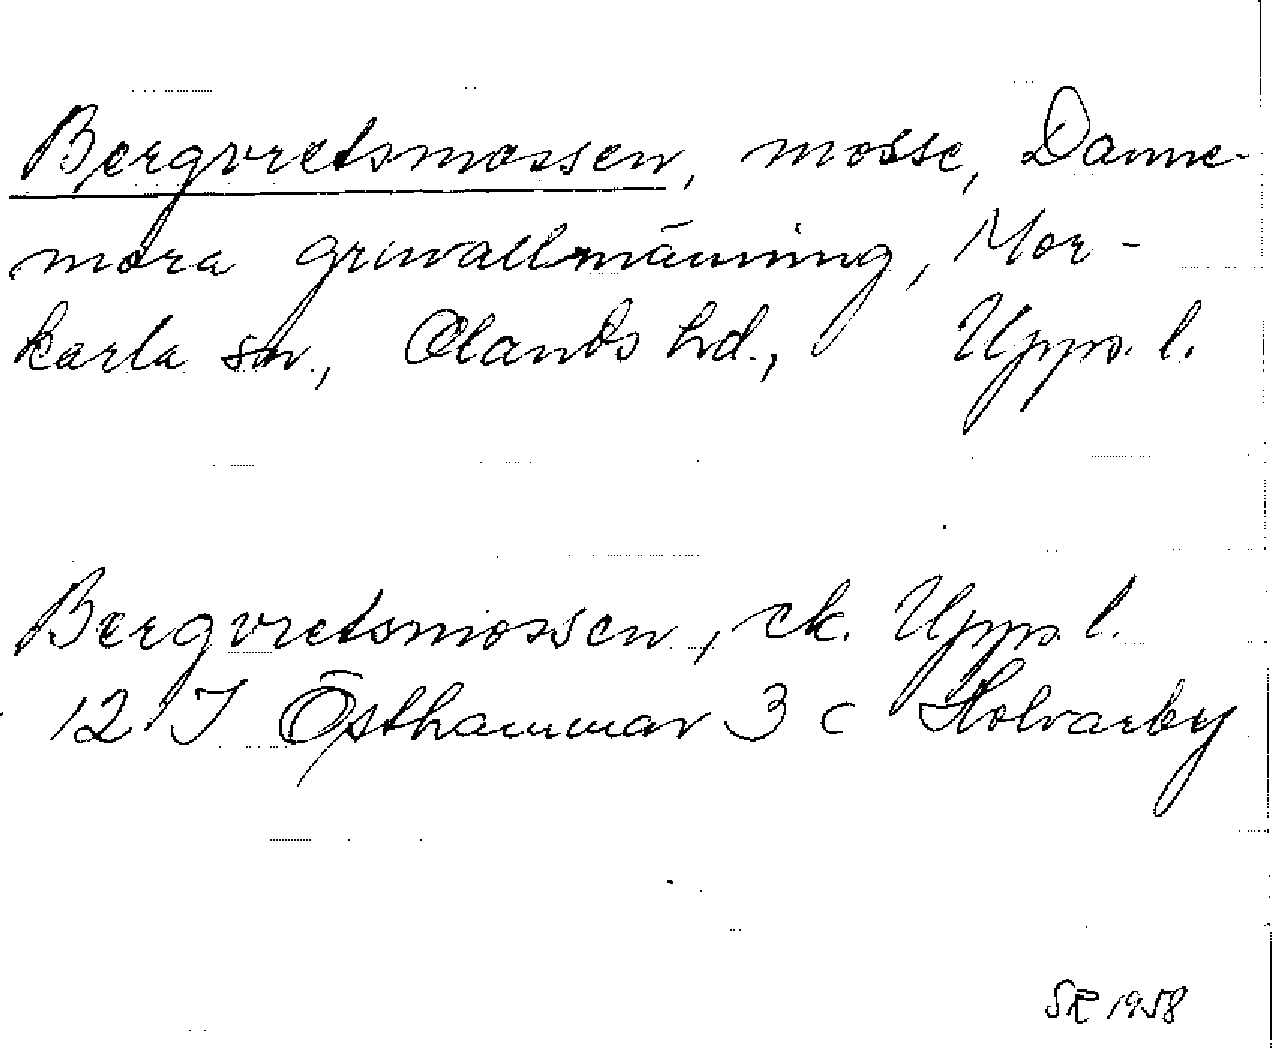 Bergvretsmossen, mosse, Danne-
mora gruvallmänning, Mor-
karla sn., Olands hd., Upps. l.
Bergvretsmossen, ek. Upps. l.
12 I Östhammar 3 c Stolvarby
SR 1958